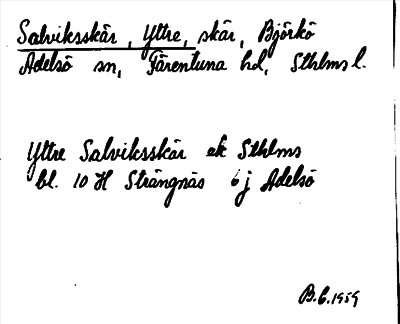 Salviksskär, Yttre, skär, Björkö
Adelsö sn, Färentuna hd, Sthlms l.
Yttre Salviksskär ek Sthlms
bl. 10 H Strängnäs 6 j Adelsö
B.C. 1959